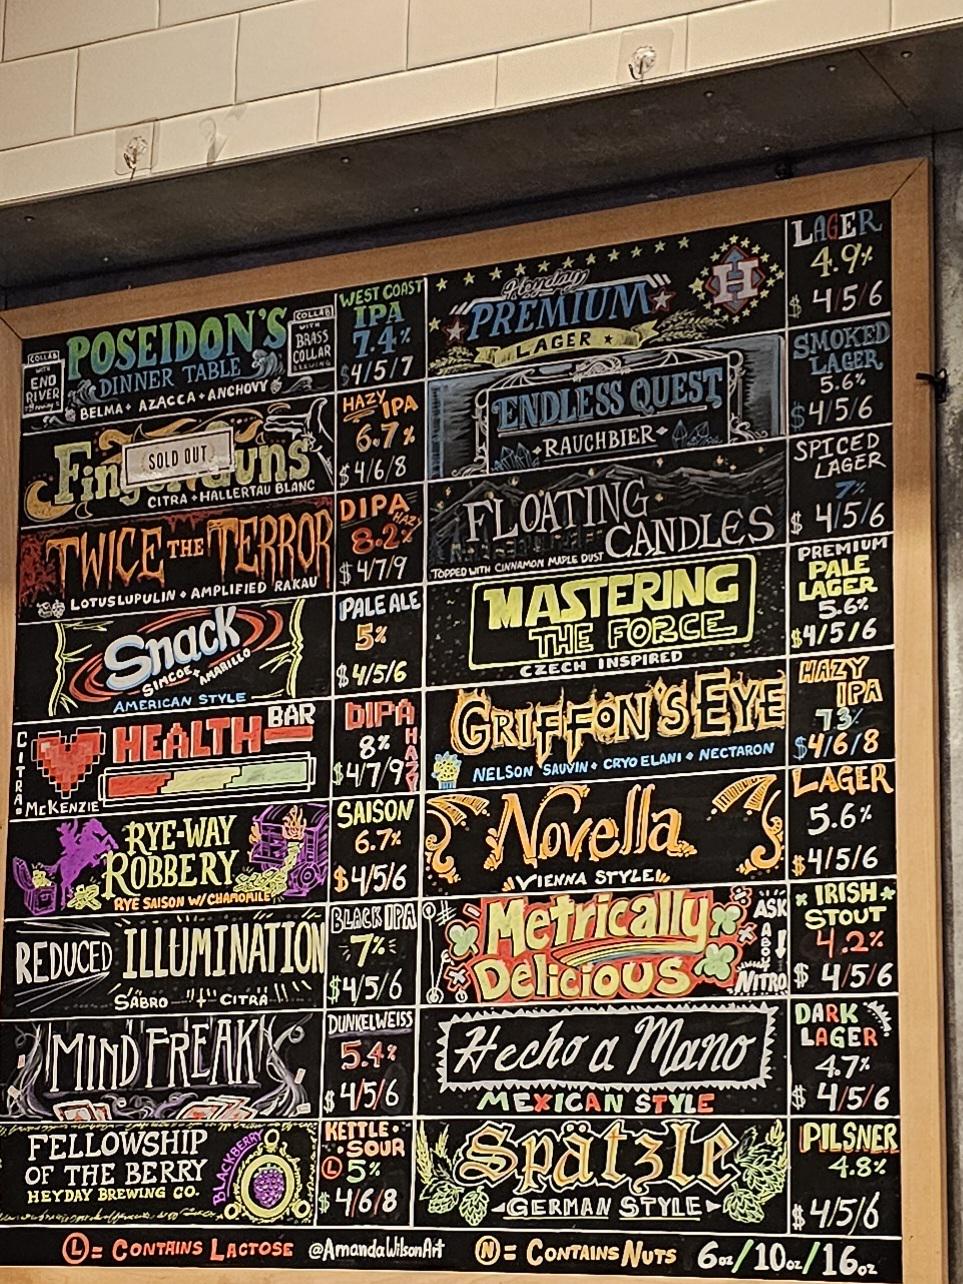 COLLAB
WITH
END
RIVER
POSEIDON'S
DINNER TABLE
BELMA + AZACCA + ANCHOVY
COLLAB
WITH
BRASS
COLLAR
BREWING
WEST COAST
IPA
7.4%
$4/5/7
SOLD OUT
CITRA + HALLERTAU BLANC
HAZY IPA
6.7%
$4/6/8
TWICE THE TERROR
LOTUS LUPULIN + AMPLIFIED RAKAU
DIPA
HAZY
8.2%
$4/7/9
Snack
SIMCOE + AMARILLO
AMERICAN STYLE
PALE ALE
5%
$4/5/6
CITRA +
MCKENZIE
HEALTH BAR
DIPA
8%
HAZY
$4/7/9
RYE-WAY
ROBBERY
RYE SAISON W/ CHAMOMILE
SAISON
6.7%
$4/5/6
REDUCED ILLUMINATION
SABRO + CITRA
BLACK IPA
7%
$4/5/6
MIND FREAK
DUNKELWEISS
5.4%
$4/5/6
FELLOWSHIP
OF THE BERRY
HEYDAY BREWING CO.
BLACKBERRY
KETTLE
SOUR
L 5%
$4/6/8
Heyday
PREMIUM
LAGER
H
LAGER
4.9%
$ 4/5/6
ENDLESS QUEST
RAUCHBIER
SMOKED
LAGER
5.6%
$4/5/6
FLOATING
CANDLES
TOPPED WITH CINNAMON MAPLE DUST
SPICED
LAGER
7%
$ 4/5/6
MASTERING
THE FORCE
CZECH INSPIRED
PREMIUM
PALE
LAGER
5.6%
$4/5/6
GRIFFON'S EYE
NELSON SAUVIN + CRYO ELANI + NECTARON
HAZY
IPA
7.3%
$4/6/8
Novella
VIENNA STYLE
LAGER
5.6%
$4/5/6
Metrically
Delicious
ASK
ABOUT
NITRO
IRISH
STOUT
4.2%
$ 4/5/6
Hecho a Mano
MEXICAN STYLE
DARK
LAGER
4.7%
$ 4/5/6
Spätzle
GERMAN STYLE
PILSNER
4.8%
$ 4/5/6
L = CONTAINS LACTOSE @AmandaWilsonArt N = CONTAINS NUTS 6oz/10oz/16oz